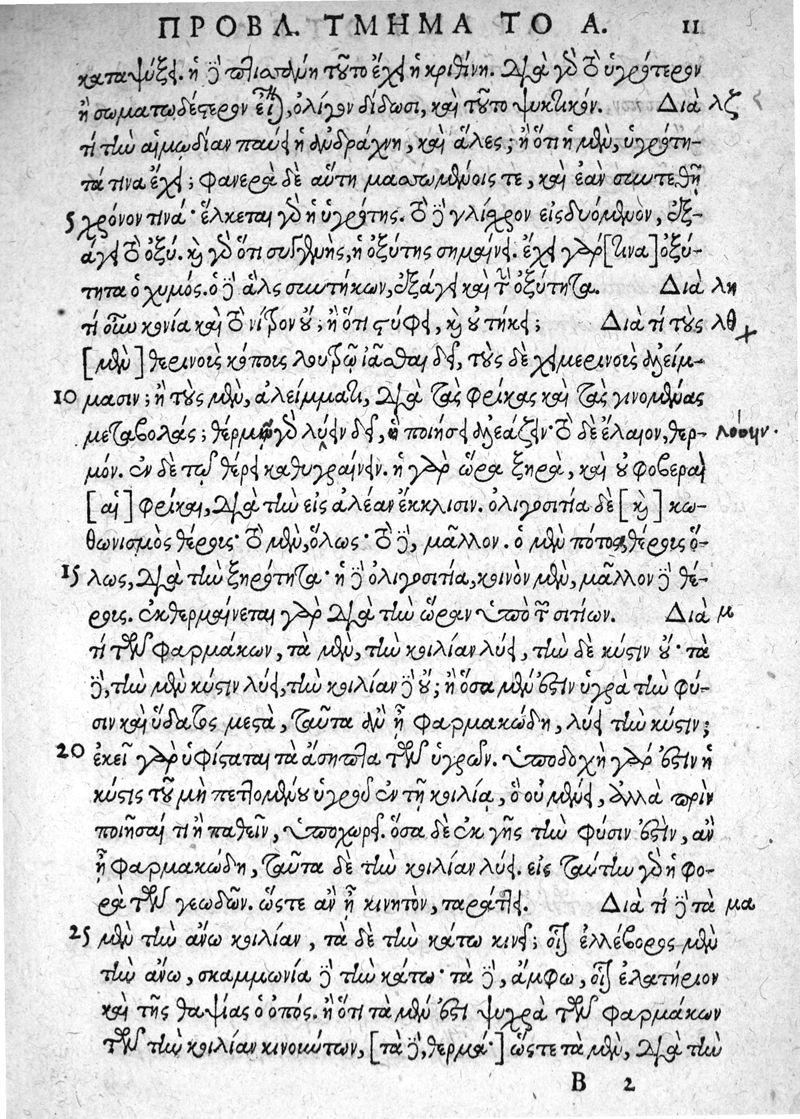 ΠΡΟΒΛ. ΤΜΗΜΑ ΤΟ Α. 11
καταψύξει. ἡ δὲ πτισάνη τοῦτο ἔχει ἢ κριθίνη. Διὰ γὰρ τὸ ὑγρότερον
ἢ σωματωδέστερον εἶναι, ὀλίγον δίδωσι, καὶ τοῦτο ψυκτικόν. Διὰ λζ
τί τὴν αἱμωδίαν παύει ἡ ἀνδράχνη, καὶ ἅλες; ἢ ὅτι ἡ μὲν, ὑγρότη-
τά τινα ἔχει; φανερὰ δὲ αὕτη μασωμένοις τε, καὶ ἐὰν συντεθῇ
5 χρόνον τινά· ἕλκεται γὰρ ἡ ὑγρότης. τὸ δὲ γλίχρον εἰσδυόμενον, ἐξ-
άγει τὸ ὀξύ. καὶ γὰρ ὅτι συγγενὴς, ἡ ὀξύτης σημαίνει. ἔχει γὰρ [τινα] ὀξύ-
τητα ὁ χυμός. ὁ δὲ ἅλς συντήκων, ἐξάγει καὶ τὴν ὀξύτητα. Διὰ λη
τί οὖν κονία καὶ τὸ νίτρον οὔ; ἢ ὅτι στύφει, καὶ οὐ τήκει; Διὰ τί τοὺς λθ
[μὲν] θερινοὺς κόπους λουτρῷ ἰᾶσθαι δεῖ, τοὺς δὲ χειμερινοὺς ἀλείμ-
10 μασιν; ἢ τοὺς μὲν, ἀλείμματι, διὰ τὰς φρίκας καὶ τὰς γινομένας
μεταβολάς; θερμῷ γὰρ λύειν δεῖ, ὃ ποιήσει ἀλεάζειν· τὸ δὲ ἔλαιον, θερ- λούειν.
μόν. ἐν δὲ τῷ θέρει καθυγραίνειν. ἡ γὰρ ὥρα ξηρὰ, καὶ οὐ φοβεραὶ
[αἱ] φρίκαι, διὰ τὴν εἰς ἀλέαν ἔκκλισιν. ὀλιγοσιτία δὲ [καὶ] κω-
θωνισμὸς θέρους· τὸ μὲν, ὅλως· τὸ δὲ, μᾶλλον. ὁ μὲν πότος θέρους ὅ-
15 λως, διὰ τὴν ξηρότητα· ἡ δὲ ὀλιγοσιτία, κοινὸν μὲν, μᾶλλον δὲ θέ-
ρους. ἐκθερμαίνεται γὰρ διὰ τὴν ὥραν ὑπὸ τῶν σιτίων. Διὰ μ
τί τῶν φαρμάκων, τὰ μὲν, τὴν κοιλίαν λύει, τὴν δὲ κύστιν οὔ· τὰ
δὲ, τὴν μὲν κύστιν λύει, τὴν κοιλίαν δὲ οὔ; ἢ ὅσα μέν ἐστιν ὑγρὰ τὴν φύ-
σιν καὶ ὕδατος μεστὰ, ταῦτα ἂν ᾖ φαρμακώδη, λύει τὴν κύστιν;
20 ἐκεῖ γὰρ ὑφίσταται τὰ ἄσηπτα τῶν ὑγρῶν. ὑποδοχὴ γάρ ἐστιν ἡ
κύστις τοῦ μὴ πεττομένου ὑγροῦ ἐν τῇ κοιλίᾳ, ὃ οὐ μένει, ἀλλὰ πρὶν
ποιῆσαί τι ἢ παθεῖν, ὑποχωρεῖ. ὅσα δὲ ἐκ γῆς τὴν φύσιν ἐστὶν, ἂν
ᾖ φαρμακώδη, ταῦτα δὲ τὴν κοιλίαν λύει. εἰς ταύτην γὰρ ἡ φο-
ρὰ τῶν γεωδῶν. ὥστε ἂν ᾖ κινητὸν, ταράττει. Διὰ τί δὲ τὰ μα
25 μὲν τὴν ἄνω κοιλίαν, τὰ δὲ τὴν κάτω κινεῖ; οἷον ἐλλέβορος μὲν
τὴν ἄνω, σκαμμωνία δὲ τὴν κάτω· τὰ δὲ, ἄμφω, οἷον ἐλατήριον
καὶ τῆς θαψίας ὁ ὀπός. ἢ ὅτι τὰ μέν ἐστι ψυχρὰ τῶν φαρμάκων
τῶν τὴν κοιλίαν κινούντων, [τὰ δὲ, θερμά·] ὥστε τὰ μὲν, διὰ τὴν
B 2